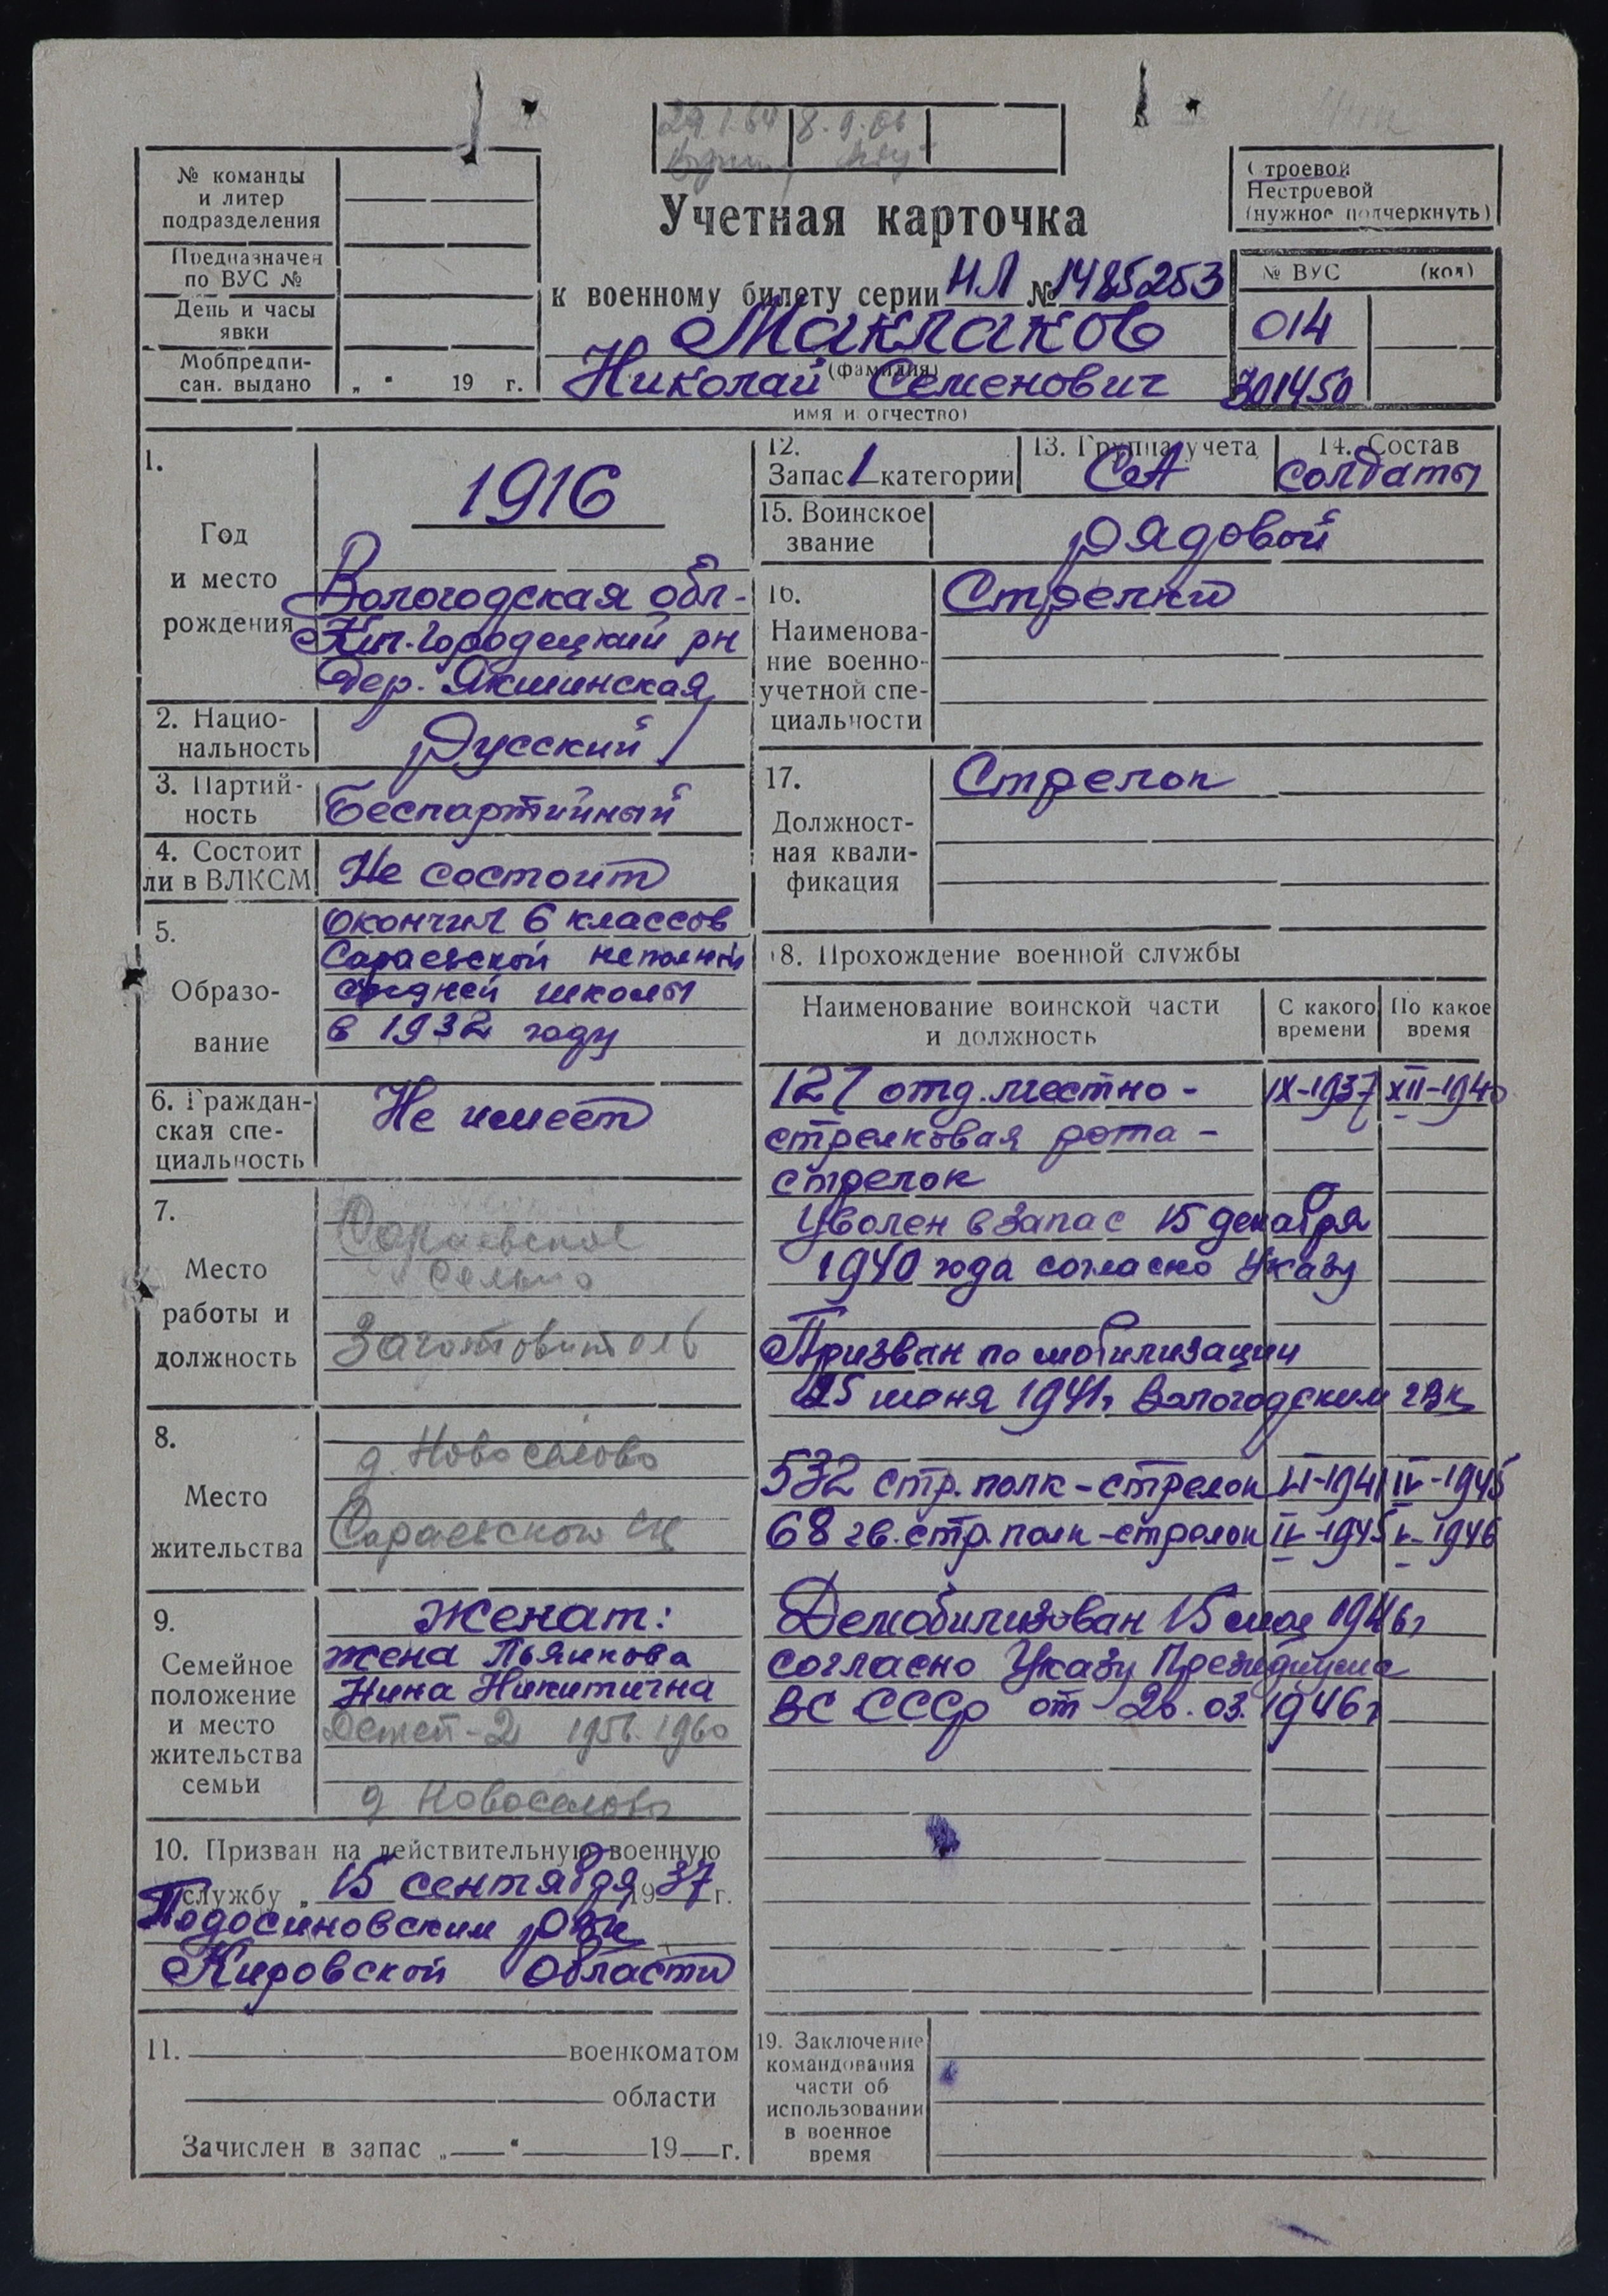 29.1.64 8.9.66
№ команды
и литер
подразделения
Предназначен
по ВУС №
День и часы
явки
Мобпредпи-
сан. выдано „ “ 19 г.
Учетная карточка
к военному билету серии НЛ № 1485253
Маклаков
(фамилия)
Николай Семенович
имя и отчество)
Строевой
Нестроевой
(нужное подчеркнуть)
№ ВУС (код)
014
301450
1.
Год
и место
рождения
1916
Вологодская обл-
Кич-Городецкий рн
дер. Якшинская
2. Нацио-
нальность
Русский
3. Партий-
ность
Беспартийный
4. Состоит
ли в ВЛКСМ
Не состоит
5.
Образо-
вание
окончил 6 классов
Сараевской неполной
средней школы
в 1932 году
6. Граждан-
ская спе-
циальность
Не имеет
7.
Место
работы и
должность
Сараевское
сельпо
Заготовитель
8.
Место
жительства
д. Новоселово
Сараевского
9.
Семейное
положение
и место
жительства
семьи
Женат:
жена Пьянкова
Нина Никитична
Детей-2 1956. 1960
д Новоселово
10. Призван на действительную военную
службу „ 15 сентября 1937 г.
Подосиновским рвк
Кировской области
11. военкоматом
области
Зачислен в запас „ “ 19 г.
12.
Запас 1 категории
13. Группа учета
СА
14. Состав
солдаты
15. Воинское
звание
рядовой
16.
Наименова-
ние военно-
учетной спе-
циальности
Стрелки
17.
Должност-
ная квали-
фикация
Стрелок
18. Прохождение военной службы
Наименование воинской части
и должность
С какого
времени
По какое
время
127 отд. местно- IX-1937 XII-1940
стрелковая рота-
стрелок
Уволен в запас 15 декабря
1940 года согласно Указу
Призван по мобилизации
25 июня 1941г Вологодским гвк
532 стр. полк - стрелок VI-1941 IV-1945
68 гв. стр. полк - стрелок IV-1945 V-1946
Демобилизован 15 мая 1946г
согласно Указу Президиума
ВС СССР от 20.03.1946г
19. Заключение
командования
части об
использовании
в военное
время